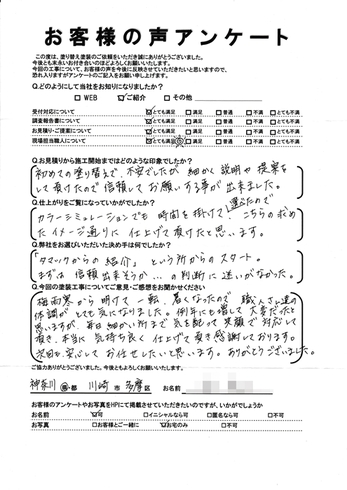 お客様の声アンケート
この度は、塗り替え塗装のご依頼をいただき誠にありがとうございました。
今後とも末永いお付き合いのほどよろしくお願いいたします。
今回の工事について、お客様の声を今後に反映させていただきたいと思いますので、
恐れ入りますがアンケートのご記入をお願い申し上げます。
Q.どのようにして当社をお知りになりましたか?
□WEB ☑ご紹介 □その他
受付対応について ☑とても満足 □満足 □普通 □不満 □とても不満
調査報告書について ☑とても満足 □満足 □普通 □不満 □とても不満
お見積り・ご提案について ☑とても満足 □満足 □普通 □不満 □とても不満
現場担当職人について ☑とても満足 □満足 □普通 □不満 □とても不満
Q.お見積りから施工開始まではどのような印象でしたか?
初めての塗り替えで、不安でしたが 細かく説明や提案を
して頂けたので信頼してお願いする事が出来ました。
Q.仕上がりをご覧になっていかがでしたか?
カラーシミュレーションでも 時間を掛けて選んだので、こちらの求め
たイメージ通りに 仕上げて頂けたと思います。
Q.弊社をお選びいただいた決め手は何でしたか?
「タマックからの紹介」という所からのスタート。
まずは信頼出来そうか…の判断に迷いがなかった。
Q.今回の塗装工事についてご意見・ご感想をお聞かせください
梅雨寒から明けて一転、暑くなったので 職人さん達の
体調がとても気になりました。例年にも増して大変だったと
思いますが、毎日細かい所まで気を配って笑顔で対応して
頂き、本当に気持ち良く仕上げて頂き感謝しております。
次回も安心してお任せしたいと思います。ありがとうございました。
ご協力ありがとうございました。今後ともよろしくお願いいたします。
神奈川 県・都 川崎 市 多摩 区 お名前
お客様のアンケートやお写真をHPにて掲載させていただきたいのですが、いかがでしょうか
お名前 ☑可 □イニシャルなら可 □匿名なら可 □不可
お写真 □お客様とご一緒に ☑お宅のみ □不可